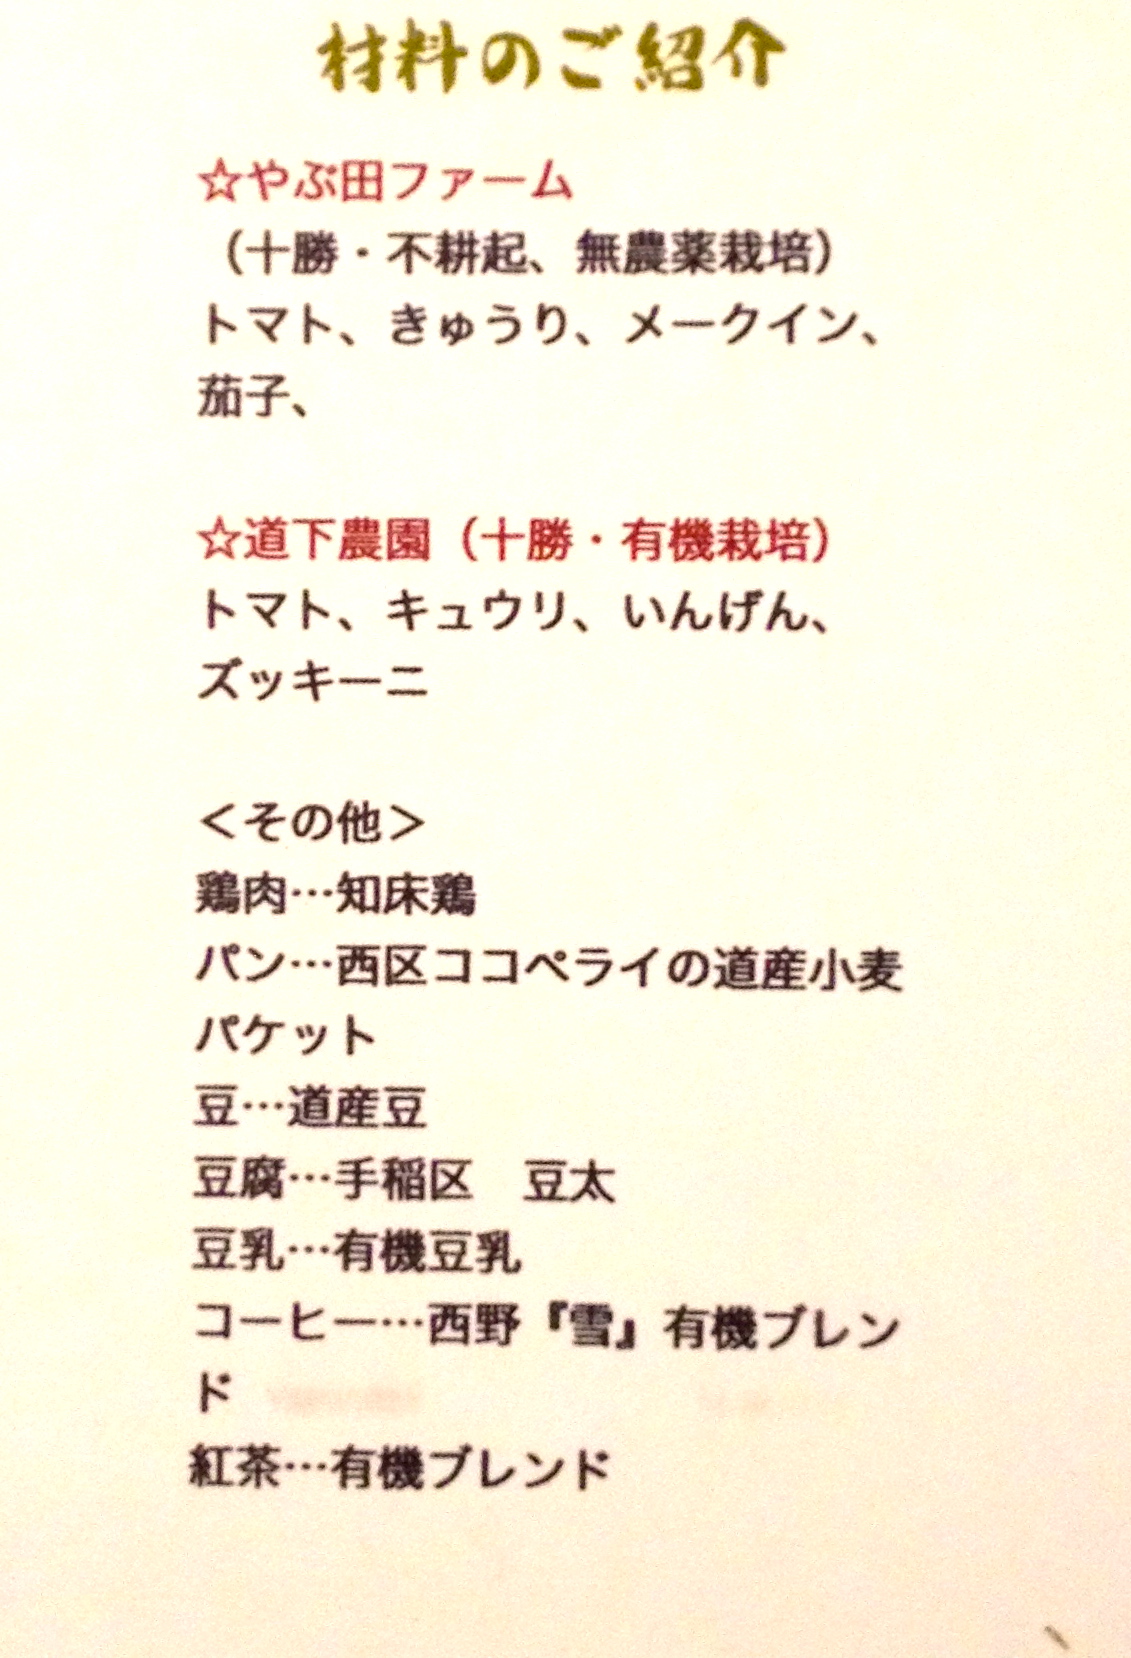 材料のご紹介
☆やぶ田ファーム
（十勝・不耕起、無農薬栽培）
トマト、きゅうり、メークイン、
茄子、
☆道下農園（十勝・有機栽培）
トマト、キュウリ、いんげん、
ズッキーニ
＜その他＞
鶏肉…知床鶏
パン…西区ココペライの道産小麦
バケット
豆…道産豆
豆腐…手稲区　豆太
豆乳…有機豆乳
コーヒー…西野『雪』有機ブレン
ド
紅茶…有機ブレンド